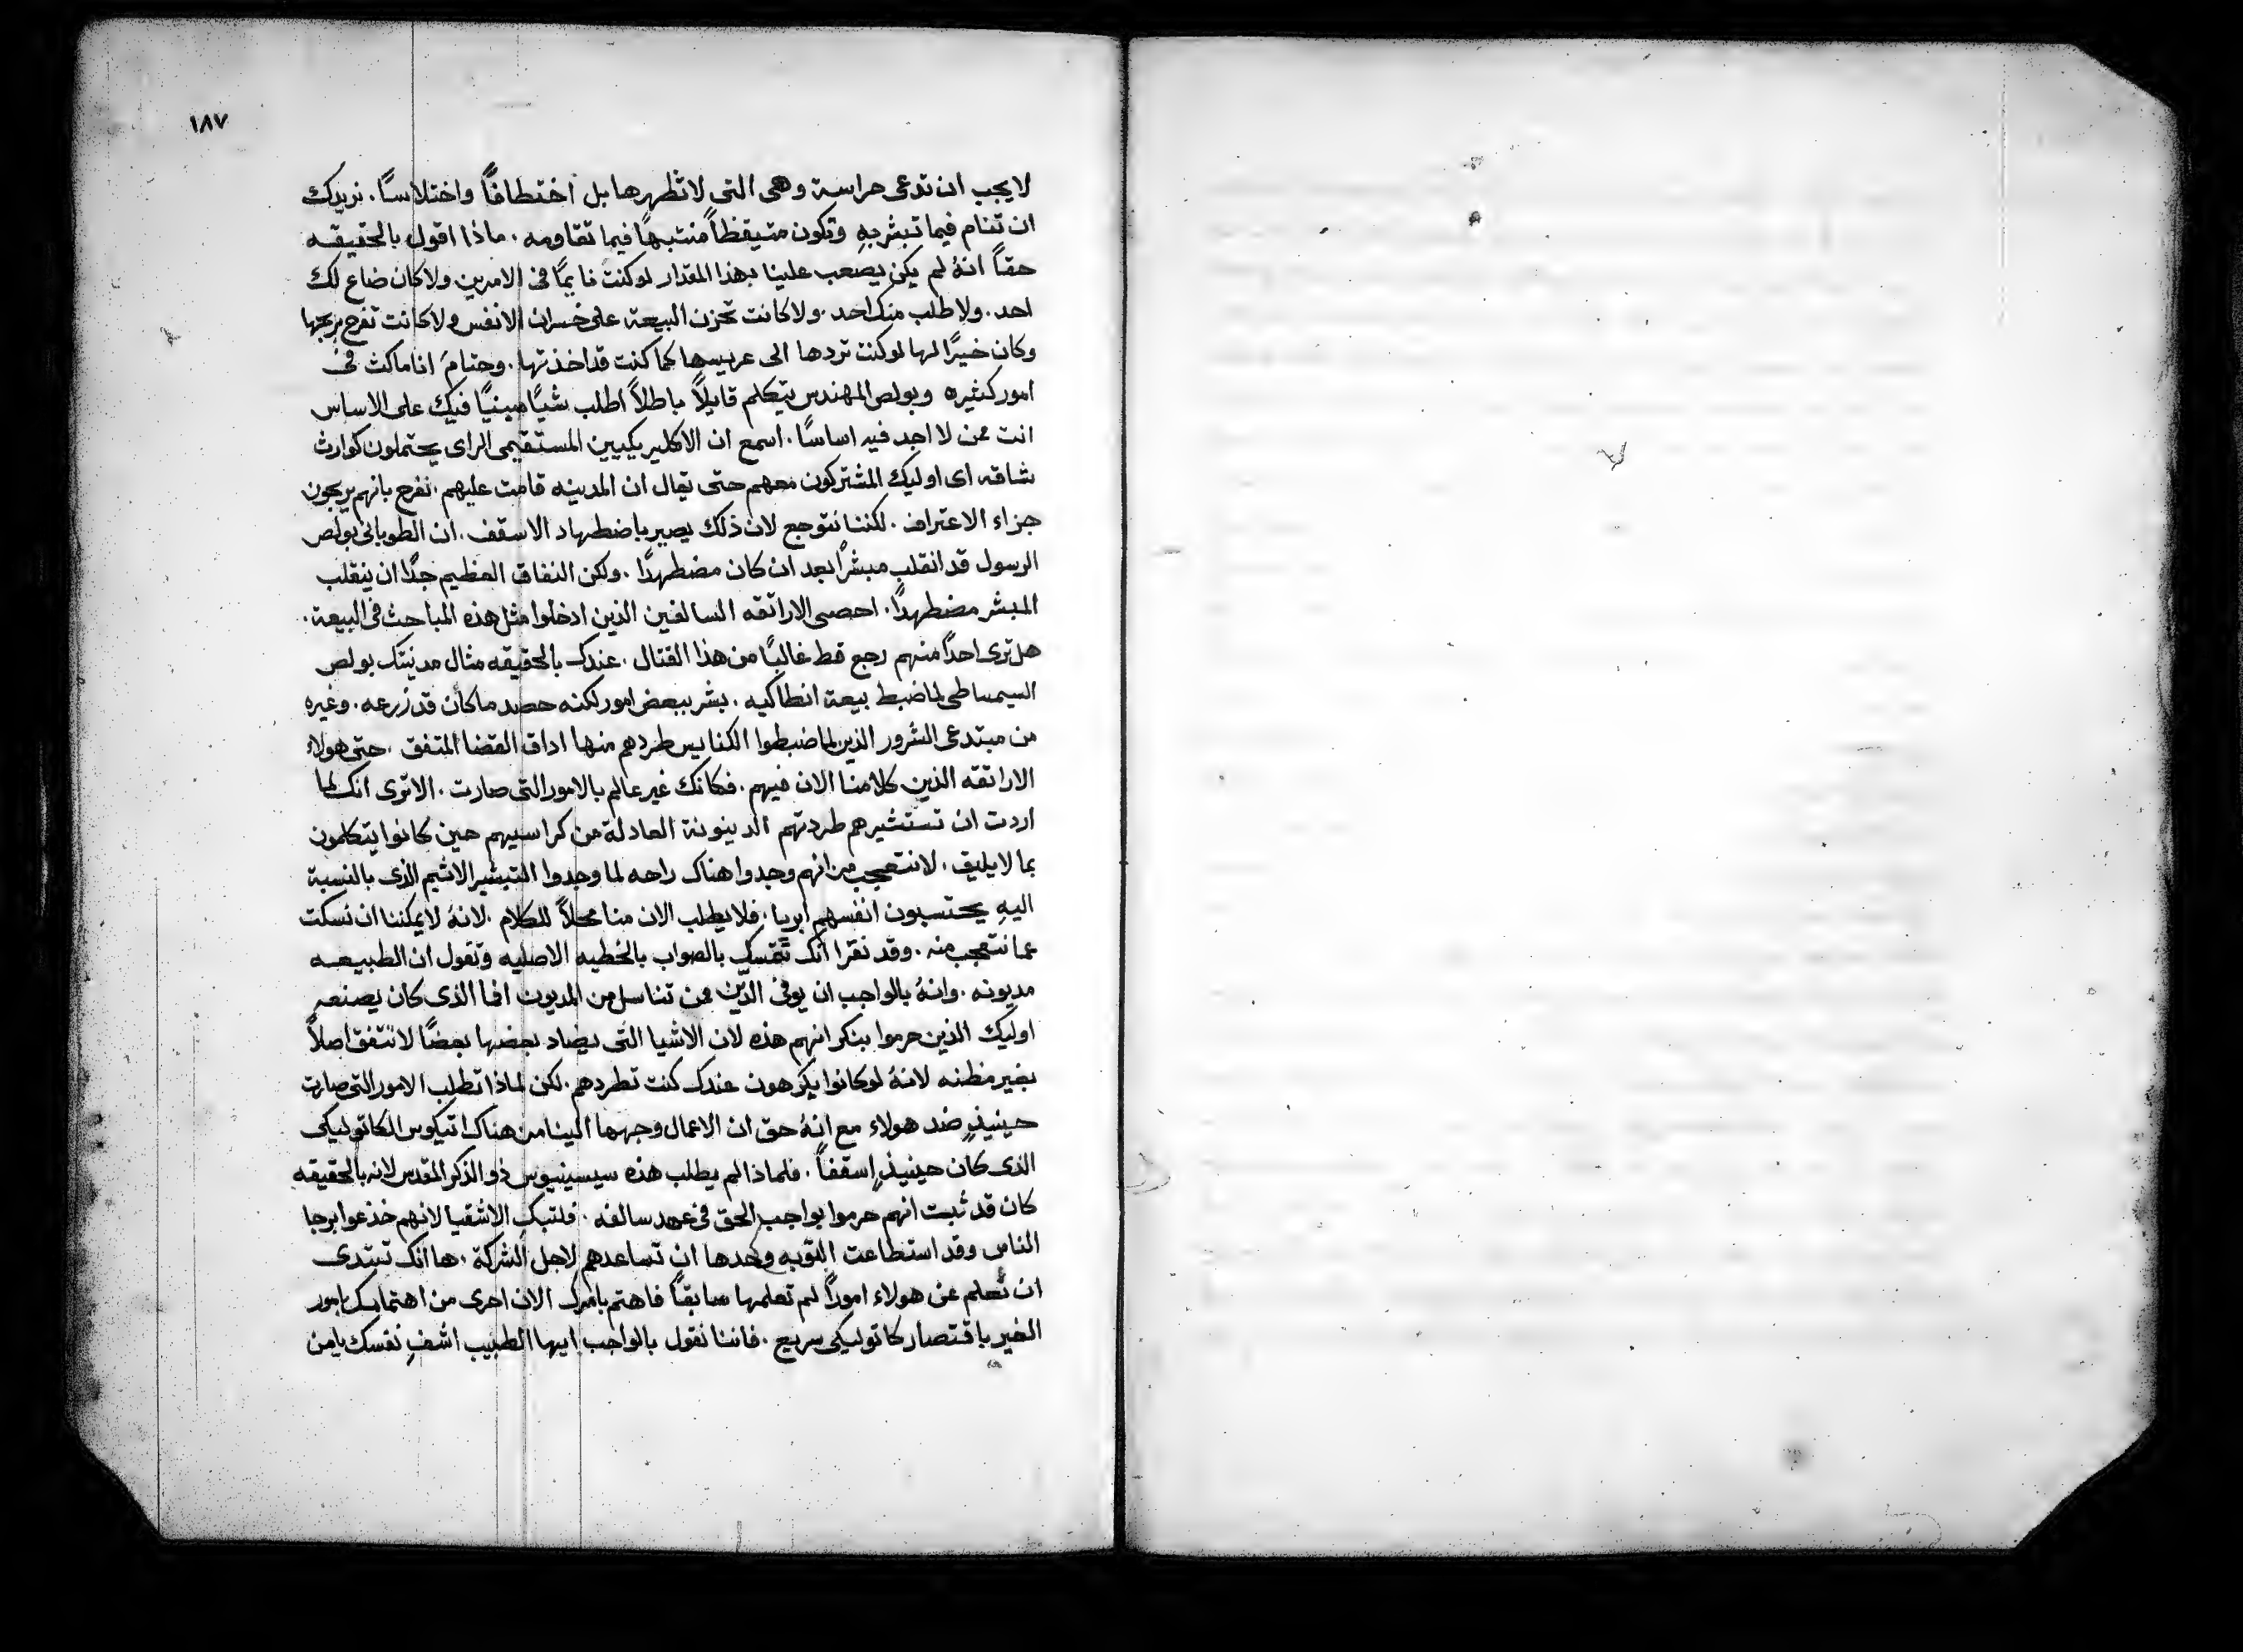 ١٨٧
لا يجب ان تدعى حراسة وهى التى لا تظهرها بل اختطافًا واختلاسًا. نريدك
ان تنام فيما تبشر بهِ وتكون متيقظاً منتبهًا فيما تقاومه. ماذا اقول بالحقيقه
حقاً انهُ لم يكن يصعب علينا بهذا المقدار لو كنت نايمًا فى الامرين ولا كان ضاع لك
احد. ولا طلب منك احد. ولا كانت تحزن البيعة على خسران الانفس ولا كانت تفرح بربحها
وكان خيرًا لها لو كنت تردها الى عريسها كما كنت قد اخذتها. وحتامَ انا ماكث فى
امور كثيره وبولص المهندس يتكلم قايلاً باطلاً اطلب شيًا مبينيًا فيك على الاساس
انت ممن لا اجد فيه اساسًا. اسمع ان الاكليريكيين المستقيمى الراى يحتملون كوارث
شاقه اى اوليك المشتركون معهم حتى يقال ان المدينه قامت عليهم. نفرح بانهم يربحون
جزاء الاعتراف. لكننا نتوجع لان ذلك يصير باضطهاد الاسقف. ان الطوبانى بولص
الرسول قد انقلب مبشرًا بعد ان كان مضطهدًا. ولكن النفاق العظيم جدًا ان ينقلب
المبشر مضطهدًا. احصى الاراتقه السالفين الذين ادخلوا مثل هذه المباحث فى البيعة.
هل ترى احدًا منهم رجع قط غالبًا من هذا القتال. عندك بالحقيقه مثال مدينتك بولص
السيمساطى لما ضبط بيعة انطاكيه. بشر ببعض امور لكنه حصد ما كان قد زرعه. وغيره
من مبتدعى الشرور الذين لما ضبطوا الكنايس طردهم منها اداق القضا المتفق. حتى هولاء
الاراتقه الذين كلامنا الان فيهم. فكانك غير عالم بالامور التى صارت. الا ترى انك لما
اردت ان تستشيرهم طردتهم الدينونة العادلة من كراسيهم حين كانوا يتكلمون
بما لا يليق. لا نتعجب من انهم وجدوا هناك راحه لما وجدوا التبشير الاثيم الذى بالنسبة
اليهِ يحتسبون انفسهم ابريا. فلا يطلب الان منا محلاً للكلام. لانهُ لا يمكننا ان نسكت
عما نتعجب منه. وقد نقرا انك تتمسك بالصواب بالخطيه الاصليه وتقول ان الطبيعه
مديونه. وانهُ بالواجب ان يوفى الدّين ممن تناسل من المديون انما الذى كان يصنعه
اوليك الذين حرموا بنكرانهم هذه لان الاشيا التى يضاد بعضها بعضًا لا تتفق اصلاً
بغير مظنه لانهُ لو كانوا يكرهون عندك كنت تطردهم. لكن لماذا تطلب الامور التى صارت
حينيذٍ ضد هولاء مع انهُ حق ان الاعمال وجهها الينا من هناك اتيكوس الكاتوليكى
الذى كان حينيذٍ اسقفاً. فلماذا لم يطلب هذه سيسينيوس ذو الذكر المقدس لانه بالحقيقه
كان قد ثبت انهم حرموا بواجب الحق فى عهد سالفه. فلتبكِ الاشقيا لانهم خدعوا برجا
الناس وقد استطاعت التوبه وحدها ان تساعدهم لاجل الشركة. ها انك تبتدى
ان تُعلم عن هولاء امورًا لم تعلمها سابقًا فاهتم بامرك الان احرى من اهتمامك بامور
الغير باقتصار كاتوليكى سريع. فاننا نقول بالواجب ايها الطبيب اشفِ نفسك يا من